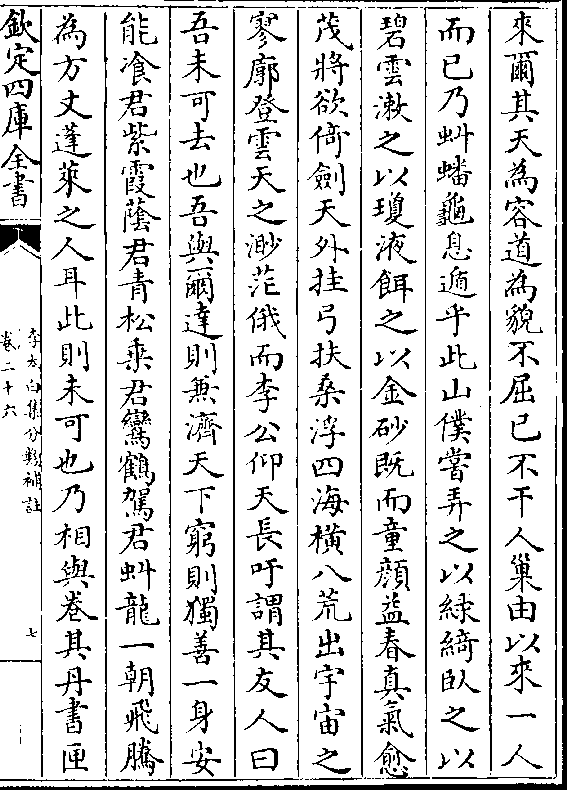 來爾其天為容道為貌不屈已不干人巢由以來一人
而已乃虯蟠龜息遁乎此山僕嘗弄之以綠綺臥之以
碧雲漱之以瓊液餌之以金砂既而童顔益春真氣愈
茂將欲倚劒天外挂弓扶桑浮四海橫八荒出宇宙之
寥廓登雲天之渺茫俄而李公仰天長吁謂其友人曰
吾未可去也吾與爾達則兼濟天下窮則獨善一身安
能飡君紫霞蔭君青松乗君鸞鶴駕君虯龍一朝飛騰
為方丈蓬萊之人耳此則未可也乃相與卷其丹書匣
欽定四庫全書
李太白集分類補註
卷二十六
七